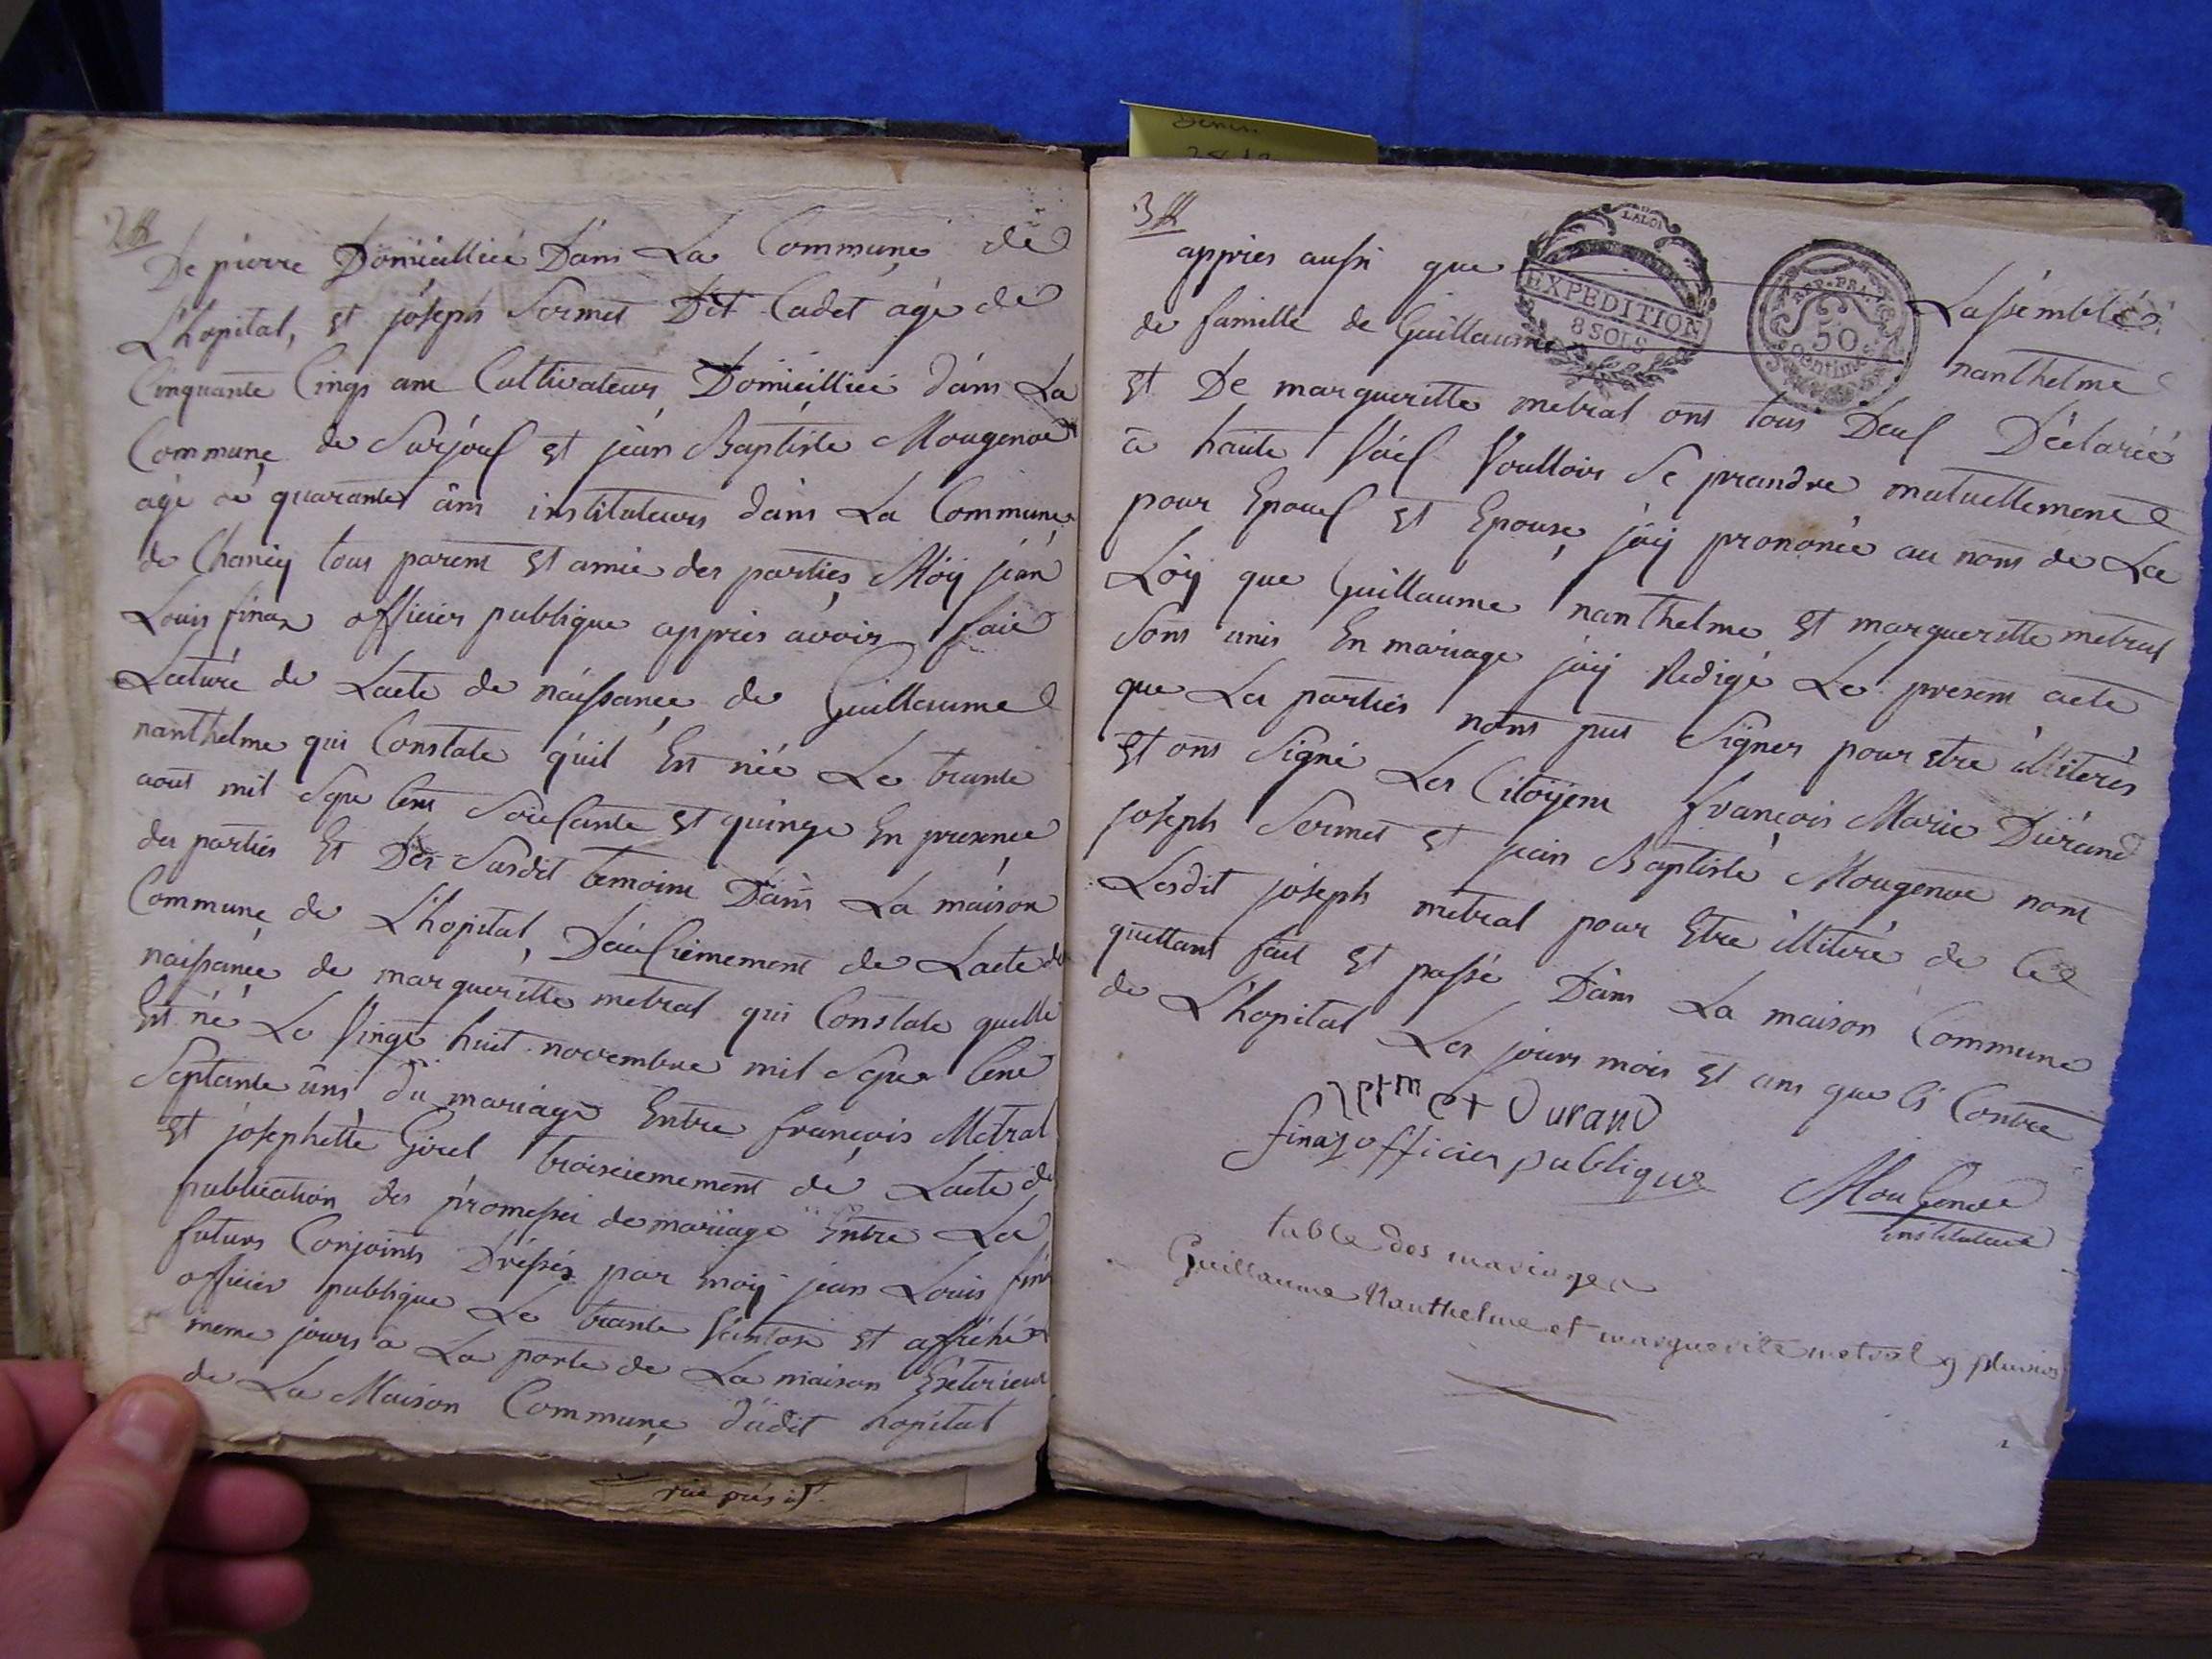 2
De pierre Domicilliée Dans La Commune de
L'hopital, et joseph Sermet Dit Cadet agé de
Cinquante Cinqs ans Cultivateurs Domicilliée dans La
Commune de Surjoux et jean Baptiste Mougenot
agé de quarante ans instituteurs dans La Commune
de Chaney tous parent et amie des parties, Moy jean
Louis finaz officier publique appries avoir fait
Lecture de L'acte de naissance de Guillaume
nanthelme qui Constate qu'il Est née Le trante
aout mil Sept Cent Soixante et quinze En presence
des parties Et Des Susdit temoins Dans La maison
Commune de L'hopital, Deuxiemement de Lacte de
naissance de margueritte metral qui Constate quelle
Est né Le Vingt huit novembre mil Sept Cent
Septante uns du mariage Entre françois Metral
et josephette Girel troisiemement de Lacte de
publication des promesses de mariage Entre Les
futurs Conjoints Dréssés par moy jean Louis fina
officier publique Le trante Ventose et affiché
meme jours a La porte de La maison Exterieur
de La Maison Commune dudit hopital
3
LA LOI
EXPEDITION
8 SOLS
REP. FRA.
50
Centimes
appries aussi que Lassemblée
de famille de Guillaume nanthelme
et De margueritte metral ont tous Deux Déclarée
a haute Voix Voulloir Se prandre mutuellement
pour Epoux et Epouse, j'ay prononcé au noms de La
Loy que Guillaume nanthelme et marguerette metral
Sons unis En mariage j'ay Redigé Le present acte
que Les parties nonts pus Signer pour etre illiterés
et ont Signé Les Citoyens françois Marie Durand
joseph Sermet et jean Baptiste Mougenot nont
Lesdit joseph metral pour Etre illiteré de Ce
quettant fait et passé Dans La maison Commune
de L'hopital Les jours mois et ans que Ci Contre
Serm et Durand
finaz officier publique
Mougenot
instituteur
table des mariages
Guillaume Nanthelme et marguerite metral 9 pluvios